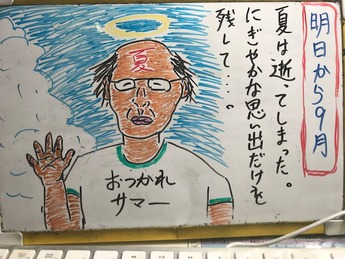 明日から9月
夏は逝ってしまった。
にぎやかな思い出だけを
残して・・・。
夏
おつかれ
サマー